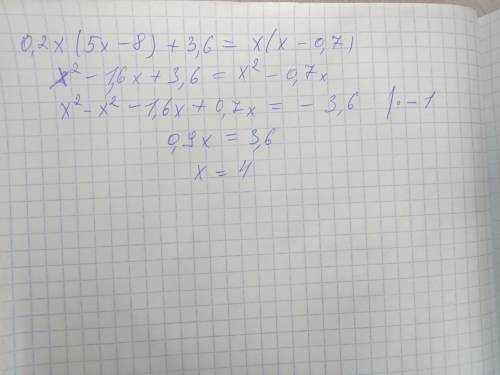 0,2x (5x-8) + 3,6 = x(x-0,7)
x² - 1,6x + 3,6 = x² - 0,7x
x² - x² - 1,6x + 0,7x = - 3,6 |·-1
0,9x = 3,6
x = 4